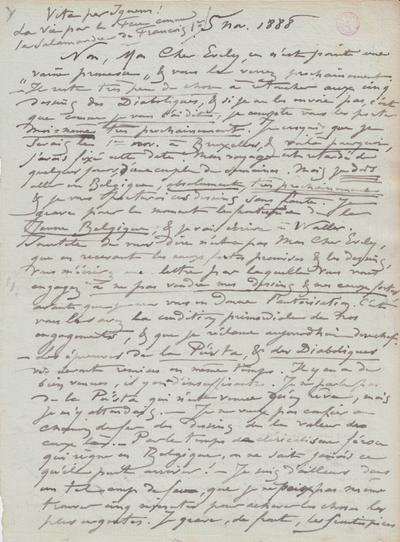 Vita per Ignem!
La vie par le Feu comme
la Salamandre de François 1er
5 Nov. 1888
Non, Mon Cher Evely, ce n'est point une
"vaine promesse" & vous le verrez prochainement
Il reste très peu de chose à retoucher aux cinq
dessins des Diaboliques, & si je ne les envoie pas, c'est
que comme je vous l'ai dit, je compte vous les porter
moi-même très prochainement. Je croyais que je
serais le 1er nov. à Bruxelles, & voilà pourquoi
j'avais fixé cette date. Mon voyage est retardé de
quelques jours, d'une couple de semaines. Mais je dois
aller en Belgique, absolument, très prochainement
& je vous porterai ces dessins sans faute. Je
grave pour le moment le frontispice de la
Jeune Belgique, & je vais écrire à Waller.
Inutile de vous dire n'est-ce pas Mon Cher Evely,
que en recevant les eaux fortes promises & les dessins,
vous m'écrirez une lettre par laquelle vous vous
engagez à ne pas vendre mes dessins & mes eaux fortes,
avant que je vous en donne l'autorisation. C'était
vous le savez la condition primordiale de nos
engagements, & que je réclame aujourd'hui derechef.
– Les épreuves de la Piésta, & des Diaboliques
vous seront remises en même temps. Il y en a de
bien venues, il y en a d'insuffisantes. Je ne parle pas
de la Piésta qui n'est venue qu'en rêve, mais
je m'y attendais. – Je ne veux pas confier au
chemin de fer des dessins de la valeur de
ceux là. – Par le temps de cléricalisme féroce
qui règne en Belgique, on ne sait jamais ce
qu'il peut arriver. – Je suis d'ailleurs dans
un tel coup de feu, que je ne puis pas même
trouver cinq minutes pour achever les choses les
plus urgentes. Je grave, de front, les frontispices